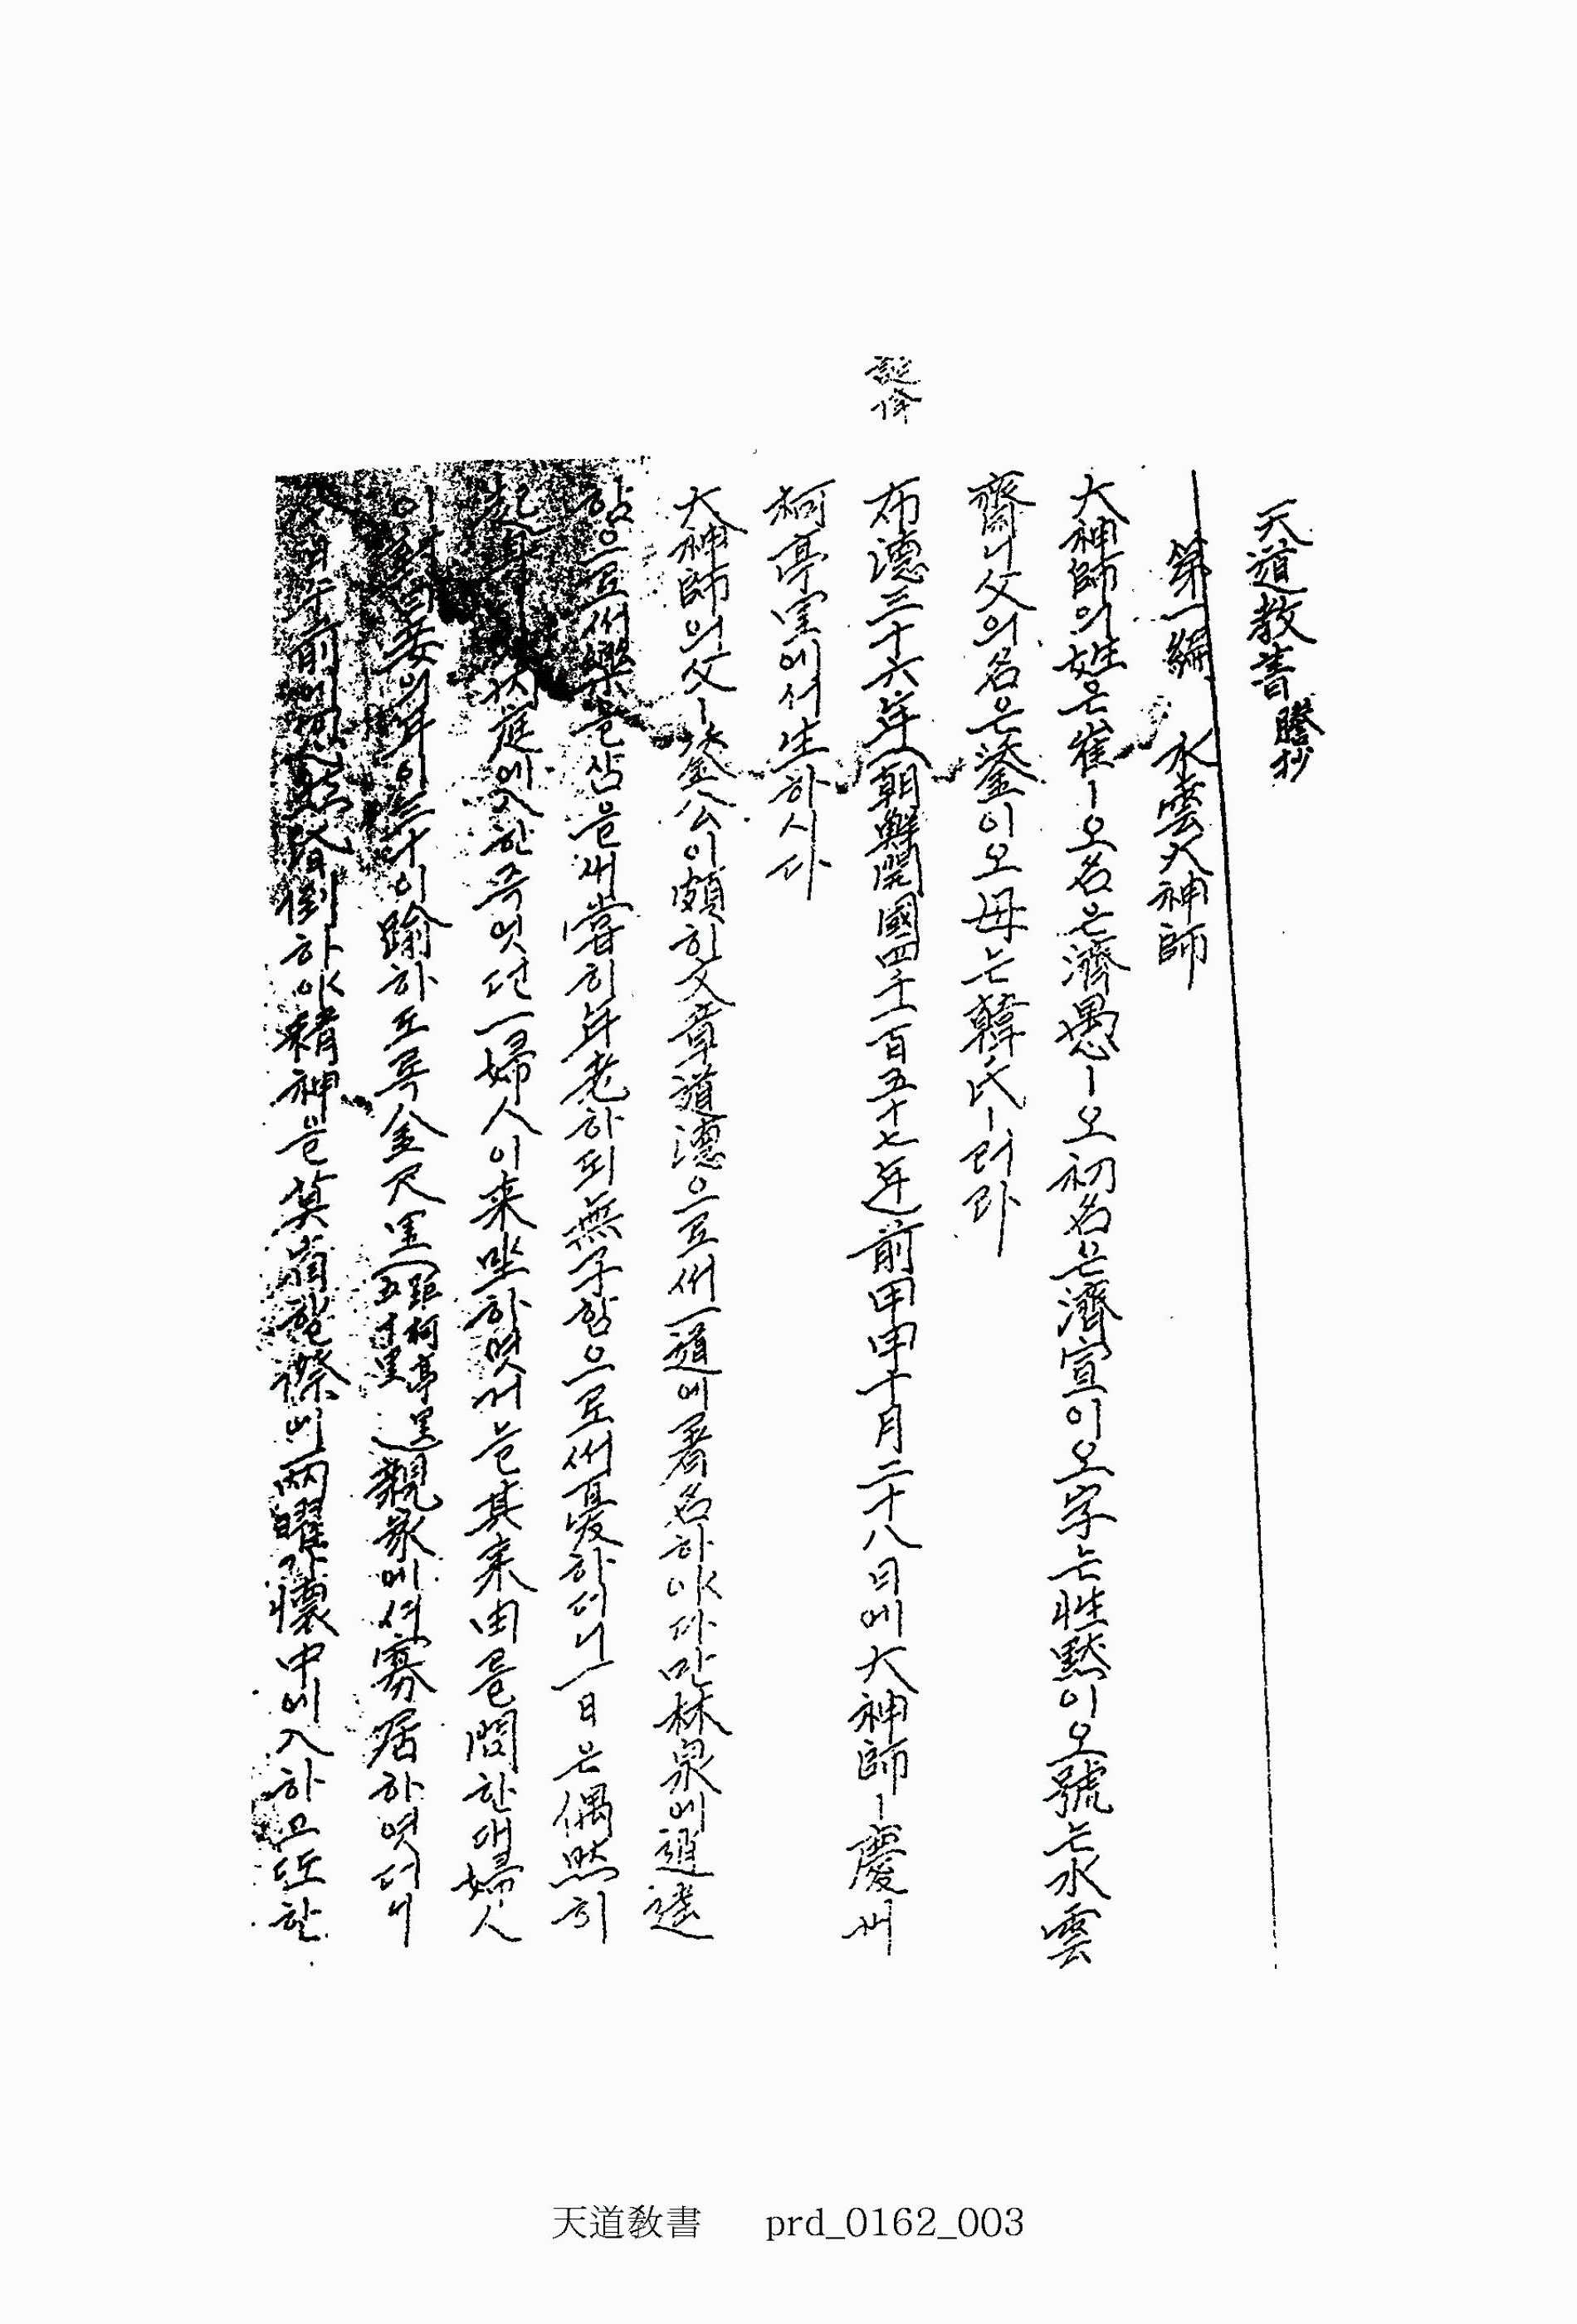 天道教書 謄抄
第一編 水雲大神師
大神師의姓은崔ㅣ오名은濟愚ㅣ오初名은濟宣이오字는性黙이오號는水雲
齋니父의名은鋈이오母는韓氏ㅣ러라
布德三十六年(朝鮮開國四千一百五十七年)前甲申十月二十八日에大神師ㅣ慶州
柯亭里에서生하시다
大神師의父ㅣ鋈公이頗히文章道德으로써一道에著名하야다만林泉에逍遙
함으로써樂을삼을새嘗히年老하되無子함으로써憂하더니一日은偶然히
內庭에入한즉엇던一婦人이來坐하엿거늘其來由를問한대婦人
이對曰妾의年이三十이踰하도록金尺里(距柯亭里五十里)親家에서寡居하엿더니
昏倒하야精神을莫省할際에兩曜가懷中에入하고또한
天道敎書 prd_0162_003